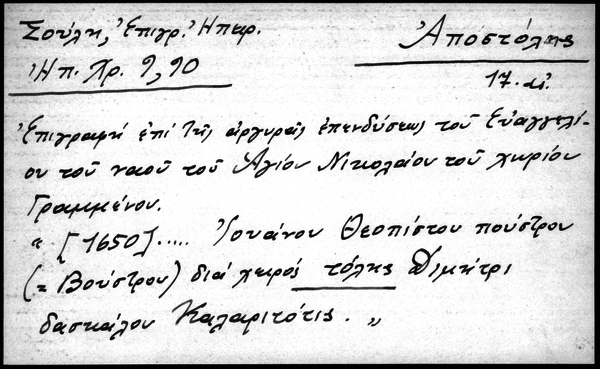 Σούλη, Ἐπιγρ. Ἠπειρ.
Ἀποστόλης
Ἠπ. Χρ. 9, 90
17. αἰ.
Ἐπιγραφή ἐπί τῆς ἀργυρᾶς ἐπενδύσεως τοῦ Εὐαγγελί-
ου τοῦ ναοῦ τοῦ Ἁγίου Νικολάου τοῦ χωρίου
Γραμμένου.
" [1650]..... Ἰουάνου Θεοπίστου πούστρου
(= Βούστρου) διά χειρός τόλης Διμήτρι
δασκάλου Καλαριτότις. "